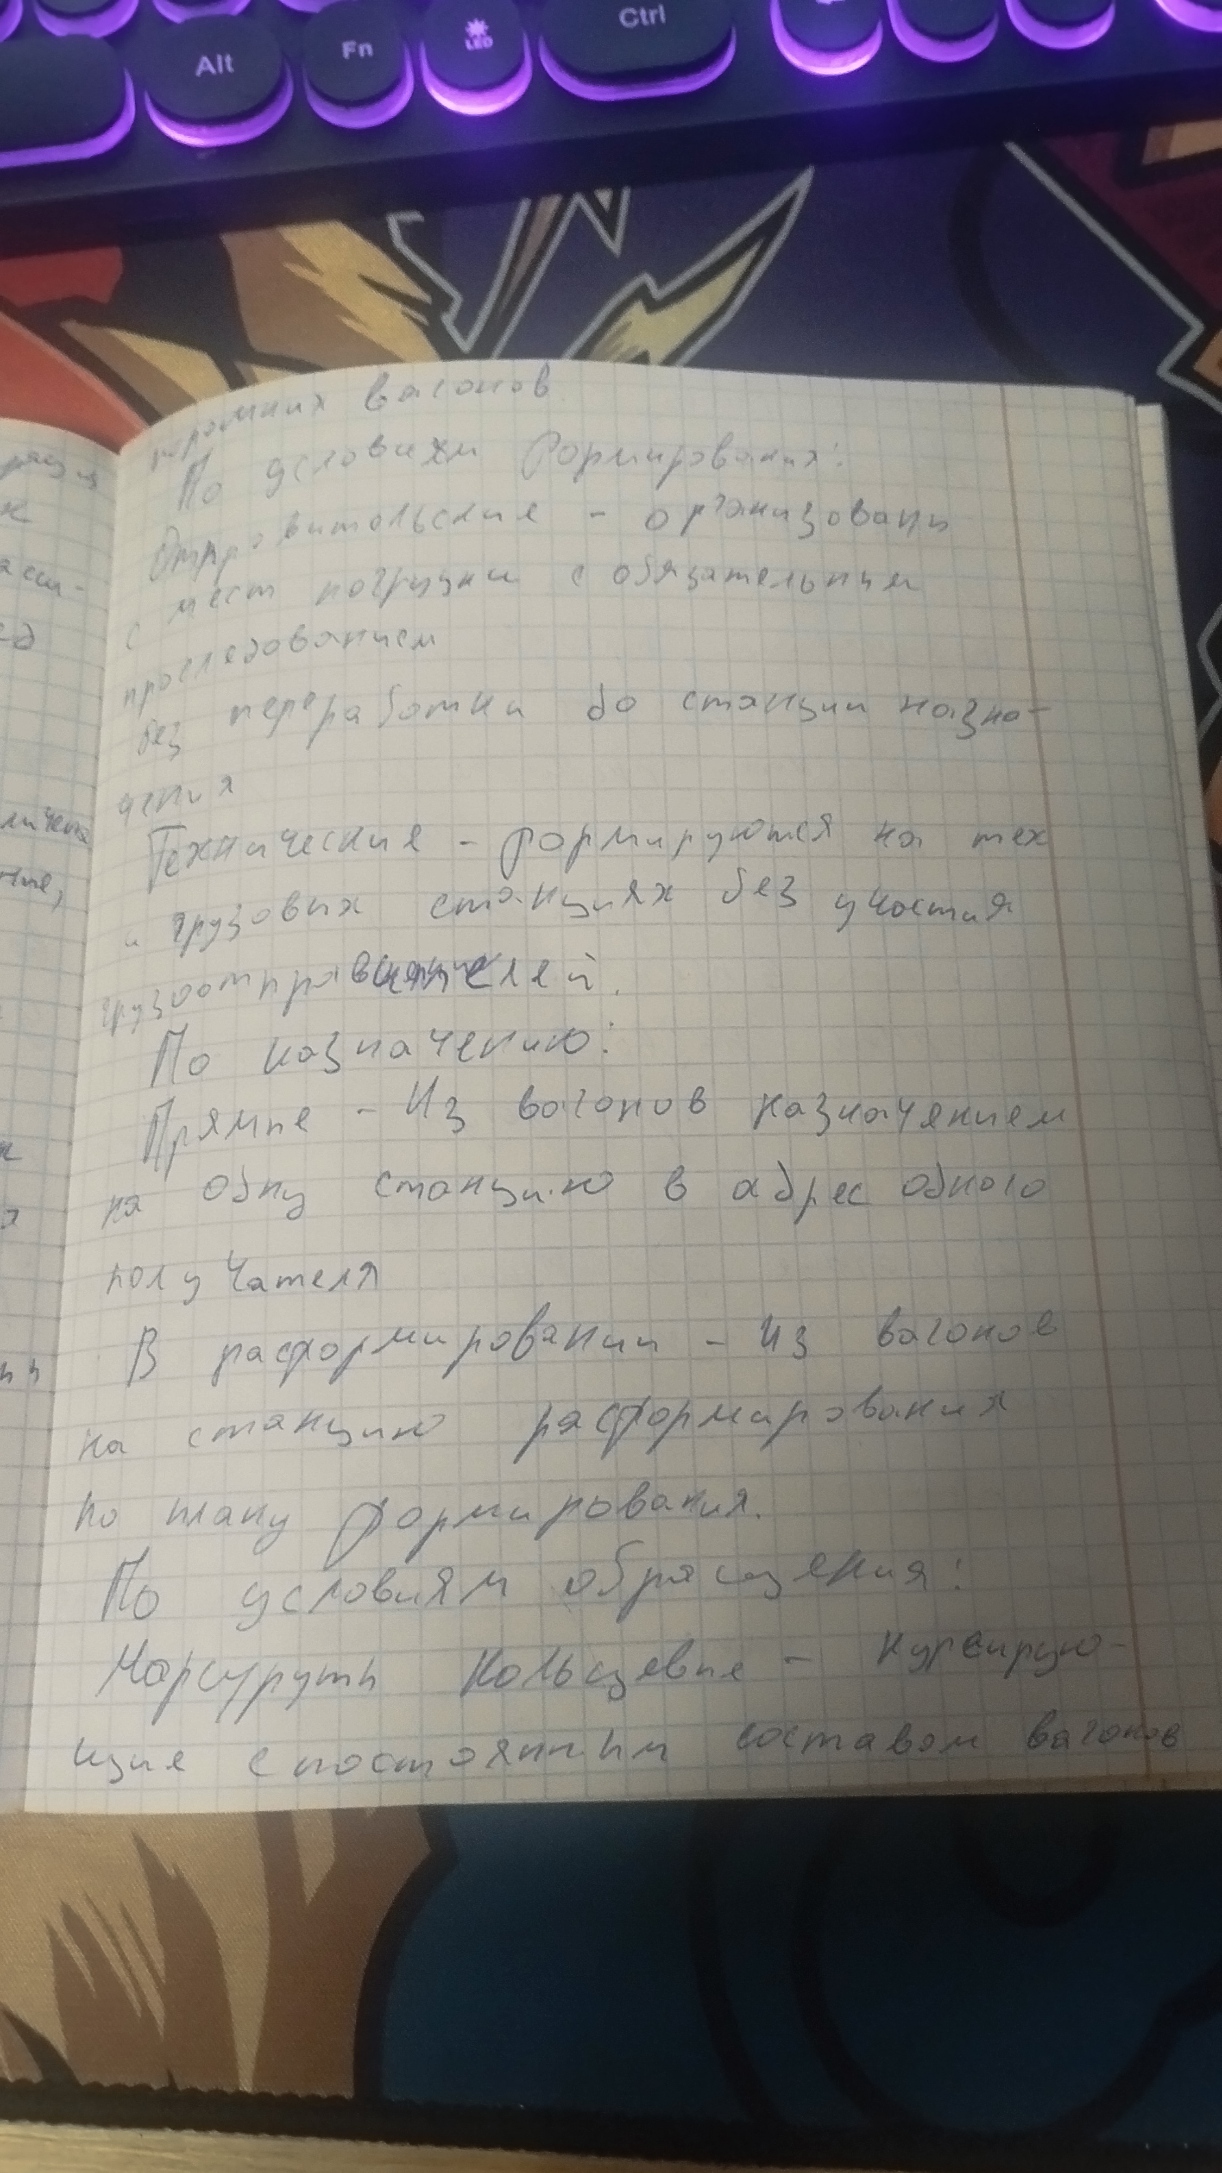 Alt Fn LED Ctrl
порожних вагонов
По условиям формирования:
Отправительские - организованы
с мест погрузки с обязательным
проследованием
без переработки до станции назна-
чения
Технические - формируются на тех
и грузовых станциях без участия
грузоотправителей.
По назначению:
Прямые - Из вагонов назначением
на одну станцию в адрес одного
получателя
В расформировании - Из вагонов
на станцию расформирования
по плану формирования.
По условиям обращения:
Марщруты Кольцевые - курсирую-
щие с постоянным составом вагонов